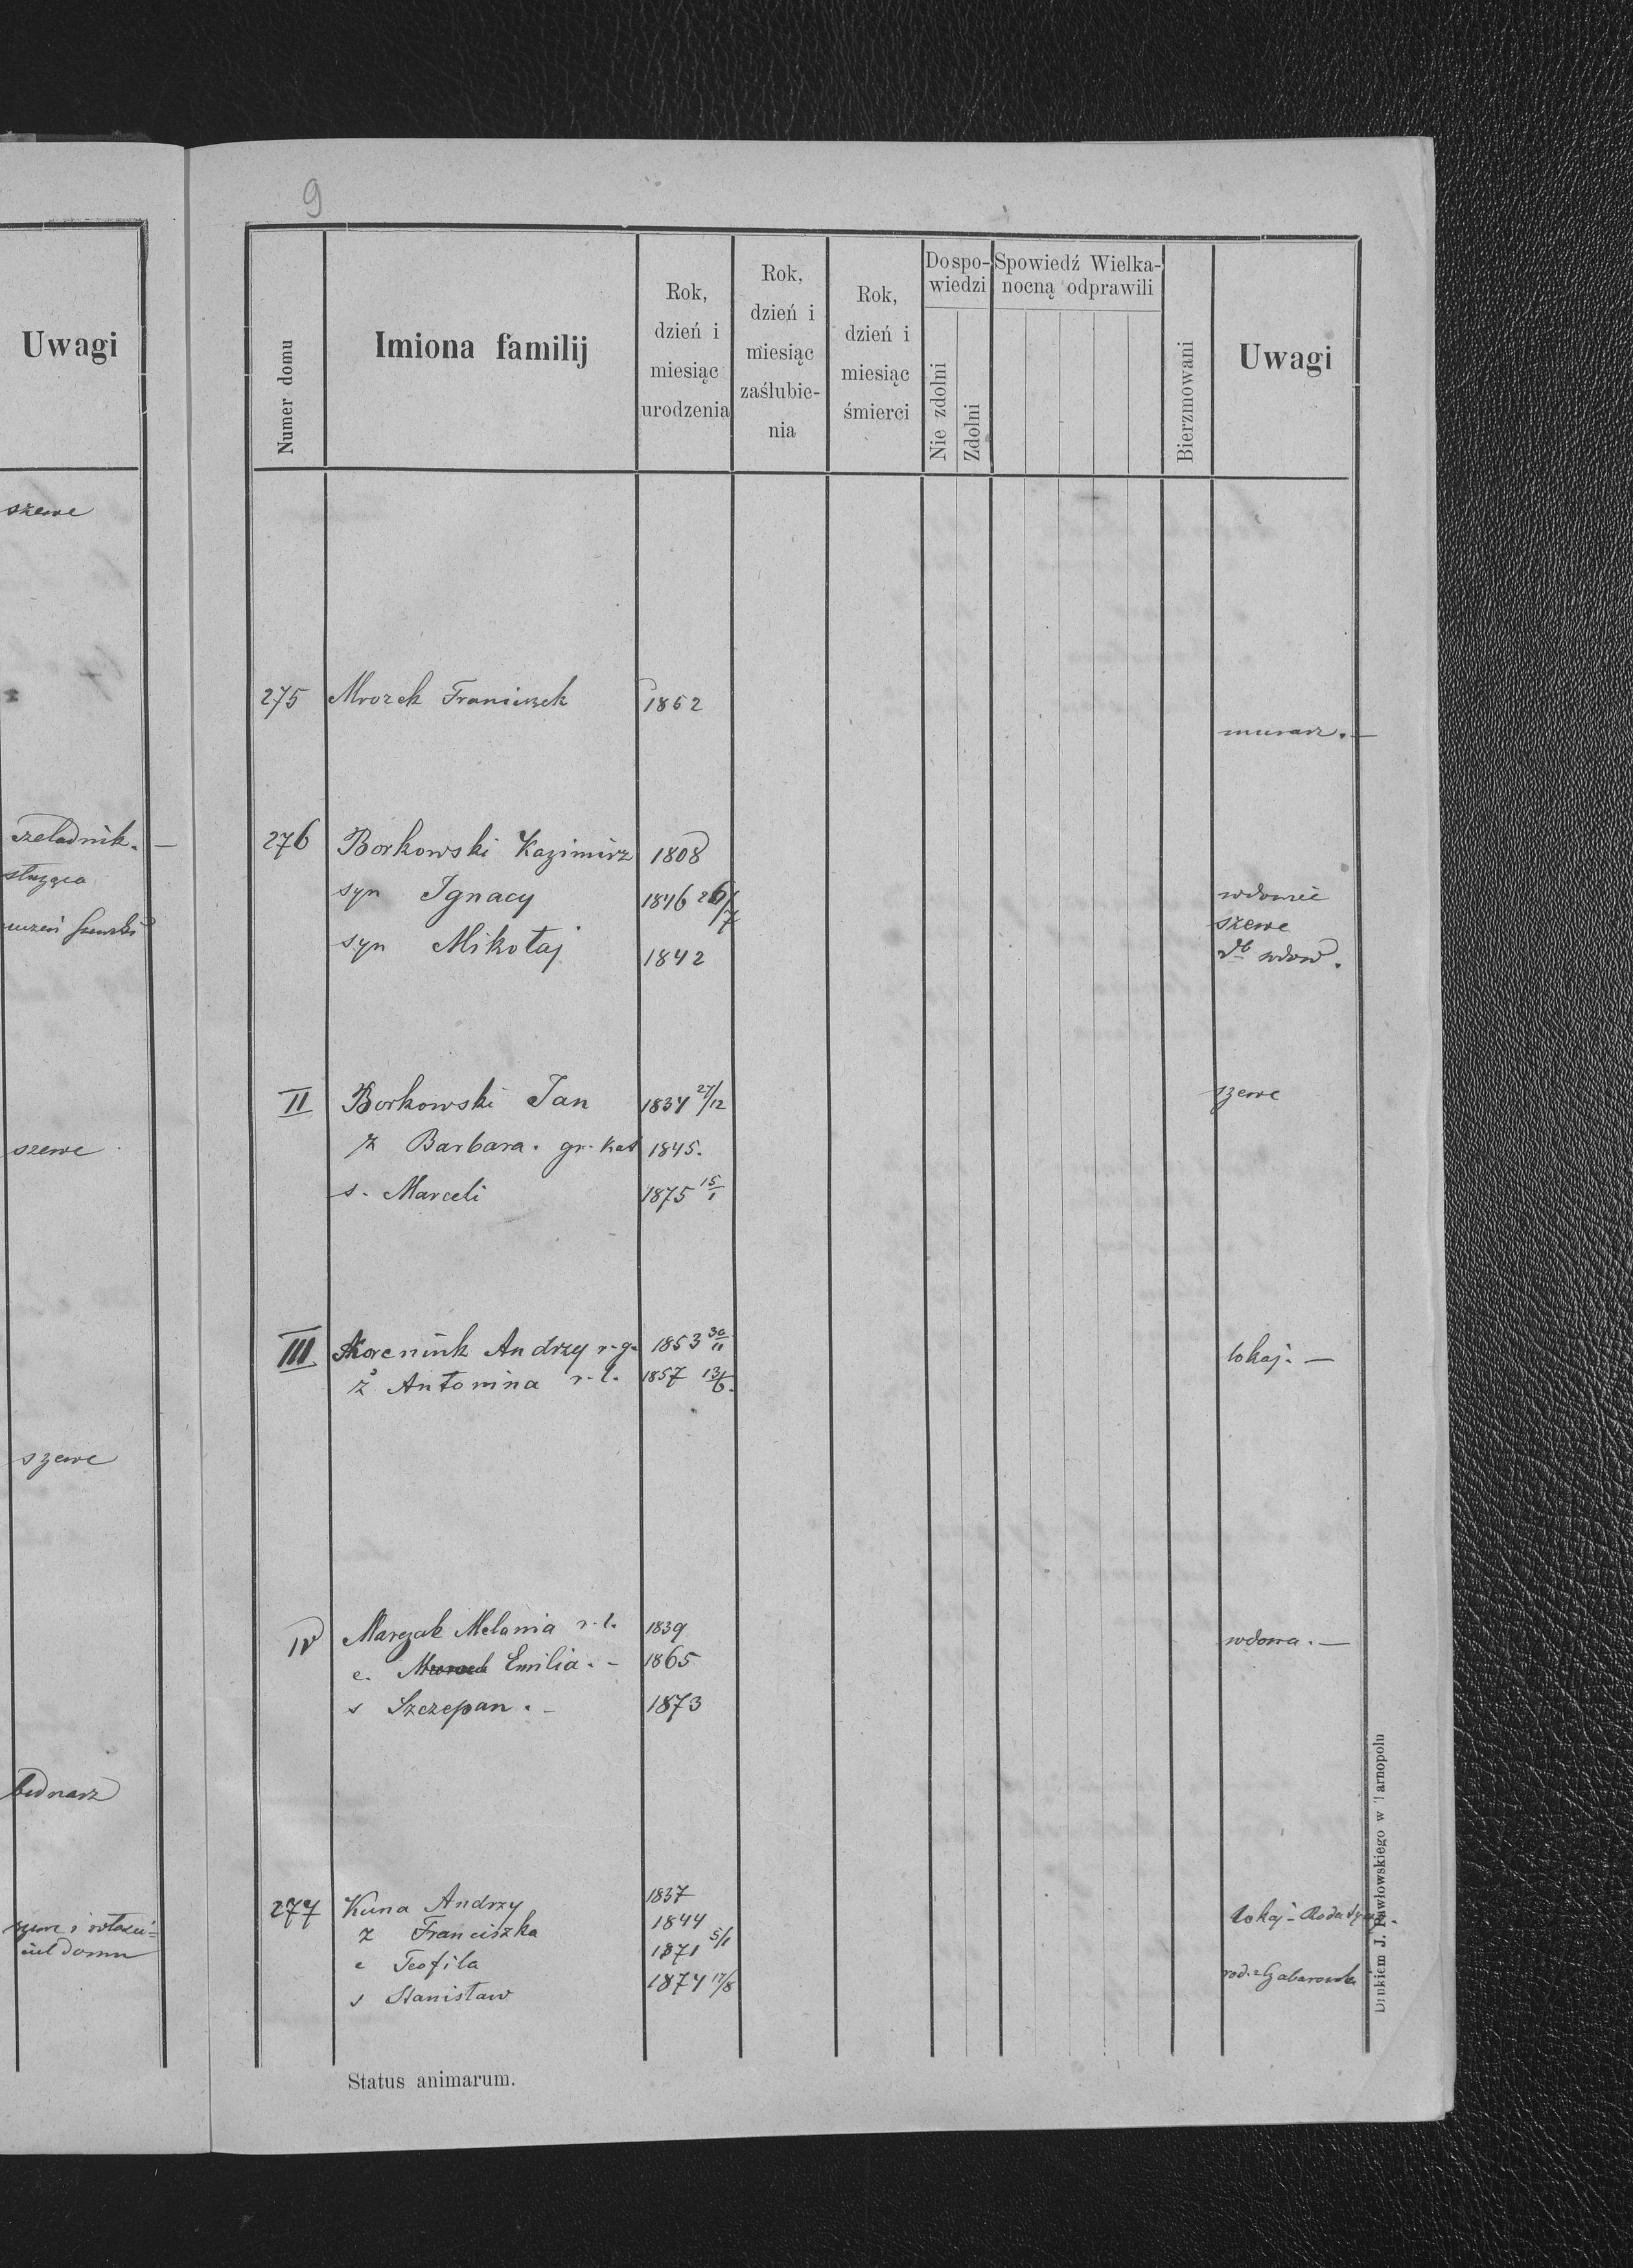 Uwagi
szewc
czeladnik. —
służąca
szewc
szewc
bednarz
ciel domu
9
Numer domu
Imiona familij
Rok, dzień i miesiąc urodzenia
Rok, dzień i miesiąc zaślubie-nia
Rok, dzień i miesiąc śmierci
Do spo-wiedzi
Nie zdolni
Zdolni
Spowiedź Wielka-nocną odprawili
Bierzmowani
Uwagi
275 Mrozek Franciszek 1862
murarz. —
276 Borkowski Kazimirz 1808
syn Ignacy 1846 26/7 wdowiec
szewc
syn Mikołaj 1842 wdow.
II Borkowski Jan 1834 27/12 szewc
ż Barbara. gr. kat 1845.
s. Marceli 1875 15/1
III Andrzy r.g. 1853 30/11 lokaj. —
ż Antonina r.l. 1857 13/6.
IV Marczak Melania r.l. 1839 wdowa. —
c. Emilia. – 1865
s Szczepan. – 1873
277 Kuna Andrzy 1837 lokaj -
ż Franciszka 1844
c Teofila 1871 5/1
s Stanisław 1874 17/8
Status animarum.
Drukiem J. Pawłowskiego w Tarnopolu